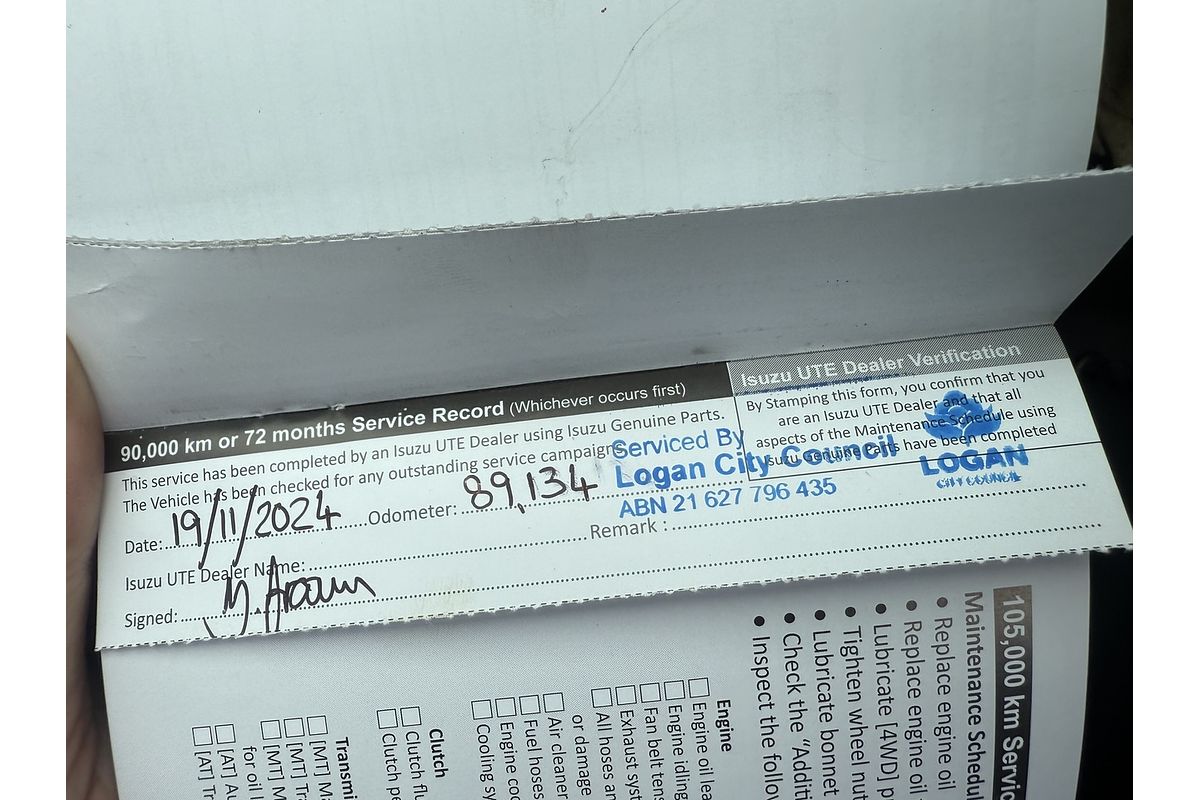 90,000 km or 72 months Service Record (Whichever occurs first)
This service has been completed by an Isuzu UTE Dealer using Isuzu Genuine Parts.
The Vehicle has been checked for any outstanding service campaigns.
Date: 19/11/2024 Odometer: 89,134
Isuzu UTE Dealer Name:
Remark :
Signed:
Isuzu UTE Dealer Verification
By Stamping this form, you confirm that you
are an Isuzu UTE Dealer and that all
aspects of the Maintenance Schedule using
Isuzu Genuine Parts have been completed
Serviced By
Logan City Council
ABN 21 627 796 435
LOGAN
CITY COUNCIL
105,000 km Servic
Maintenance Schedul
• Replace engine oil
• Replace engine oil
• Lubricate [4WD] p
• Tighten wheel nut
• Lubricate bonnet
• Check the "Additi
• Inspect the follow
Engine
Engine oil lea
Engine idling
Fan belt tens
Exhaust syst
All hoses an
or damage
Air cleaner
Fuel hoses
Engine co
Cooling sy
Clutch
Clutch flu
Clutch pe
Transmi
[MT] Ma
[MT] Tr
[MT] Tr
for oil l
[AT] Au
[AT] Tr